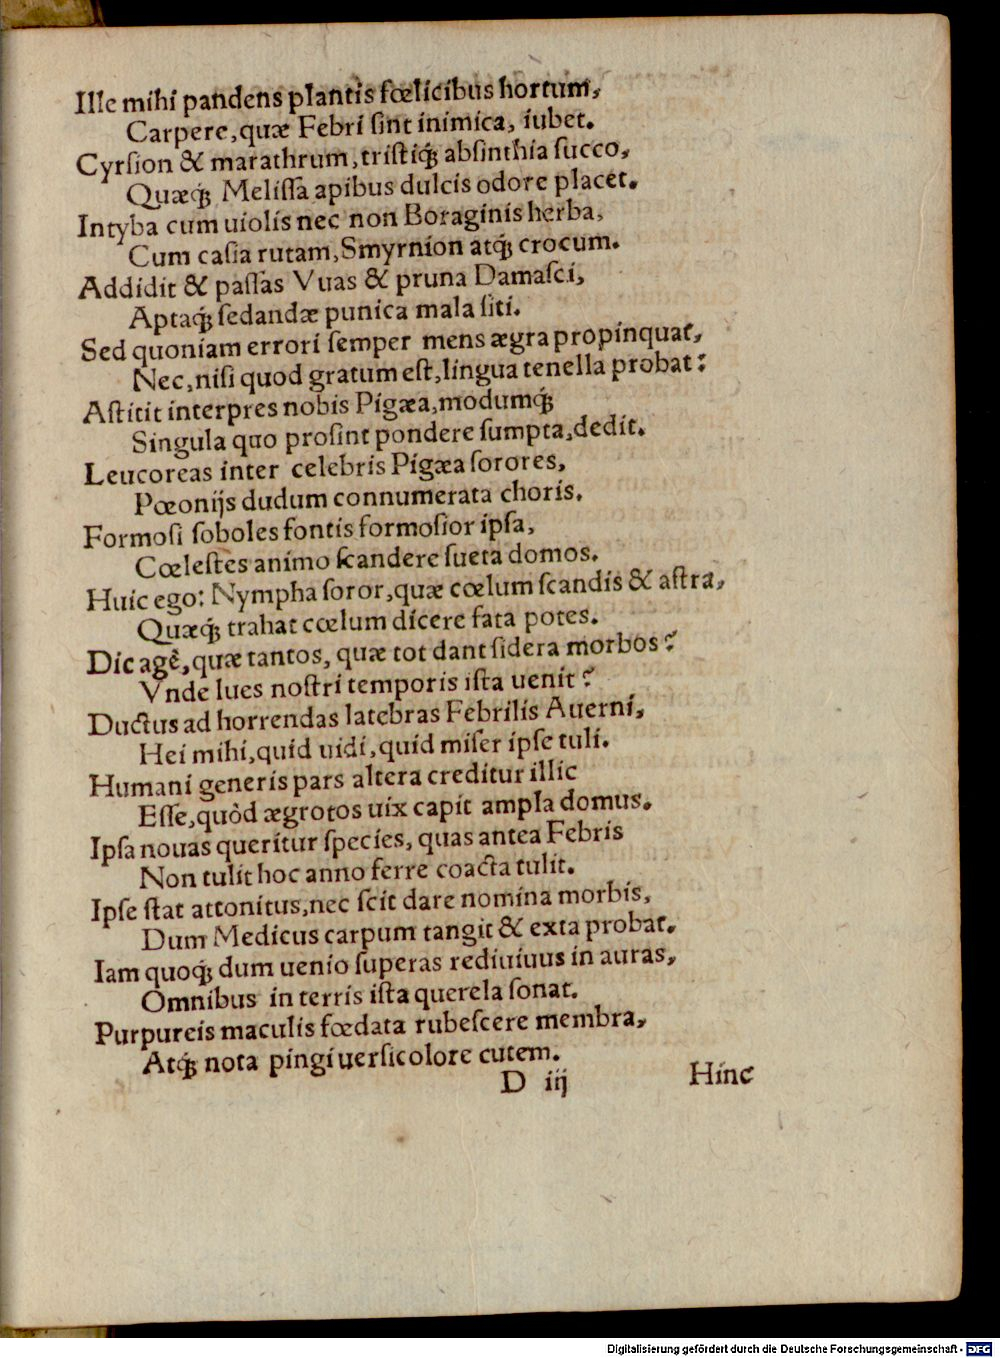 Ille mihi pandens plantis fœlicibus hortum,
Carpere, quæ Febri ſint inimica, iubet.
Cyrſion & marathrum, triſtiq́; abſinthia ſucco,
Quæq́; Meliſſa apibus dulcis odore placet.
Intyba cum uiolis nec non Boraginis herba,
Cum caſia rutam, Smyrnion atq́; crocum.
Addidit & paſſas Vuas & pruna Damaſci,
Aptaq́; ſedandæ punica mala ſiti.
Sed quoniam errori ſemper mens ægra propinquat,
Nec, niſi quod gratum eſt, lingua tenella probat:
Aſtitit interpres nobis Pigæa, modumq́;
Singula quo proſint pondere ſumpta, dedit.
Leucoreas inter celebris Pigæa ſorores,
Pœonijs dudum connumerata choris.
Formoſi ſoboles fontis formoſior ipſa,
Cœleſtes animo ſcandere ſueta domos.
Huic ego: Nympha ſoror, quæ cœlum ſcandis & aſtra,
Quæq́; trahat cœlum dicere fata potes.
Dic agè, quæ tantos, quæ tot dant ſidera morbos?
Vnde lues noſtri temporis iſta uenit?
Ductus ad horrendas latebras Febrilis Auerni,
Hei mihi, quid uidi, quid miſer ipſe tuli.
Humani generis pars altera creditur illic
Eſſe, quòd ægrotos uix capit ampla domus.
Ipſa nouas queritur ſpecies, quas antea Febris
Non tulit hoc anno ferre coacta tulit.
Ipſe ſtat attonitus, nec ſcit dare nomina morbis,
Dum Medicus carpum tangit & exta probat.
Iam quoq́; dum uenio ſuperas rediuiuus in auras,
Omnibus in terris iſta querela ſonat.
Purpureis maculis fœdata rubeſcere membra,
Atq́; nota pingi uerſicolore cutem.
D iij Hinc
Digitalisierung gefördert durch die Deutsche Forschungsgemeinschaft - DFG